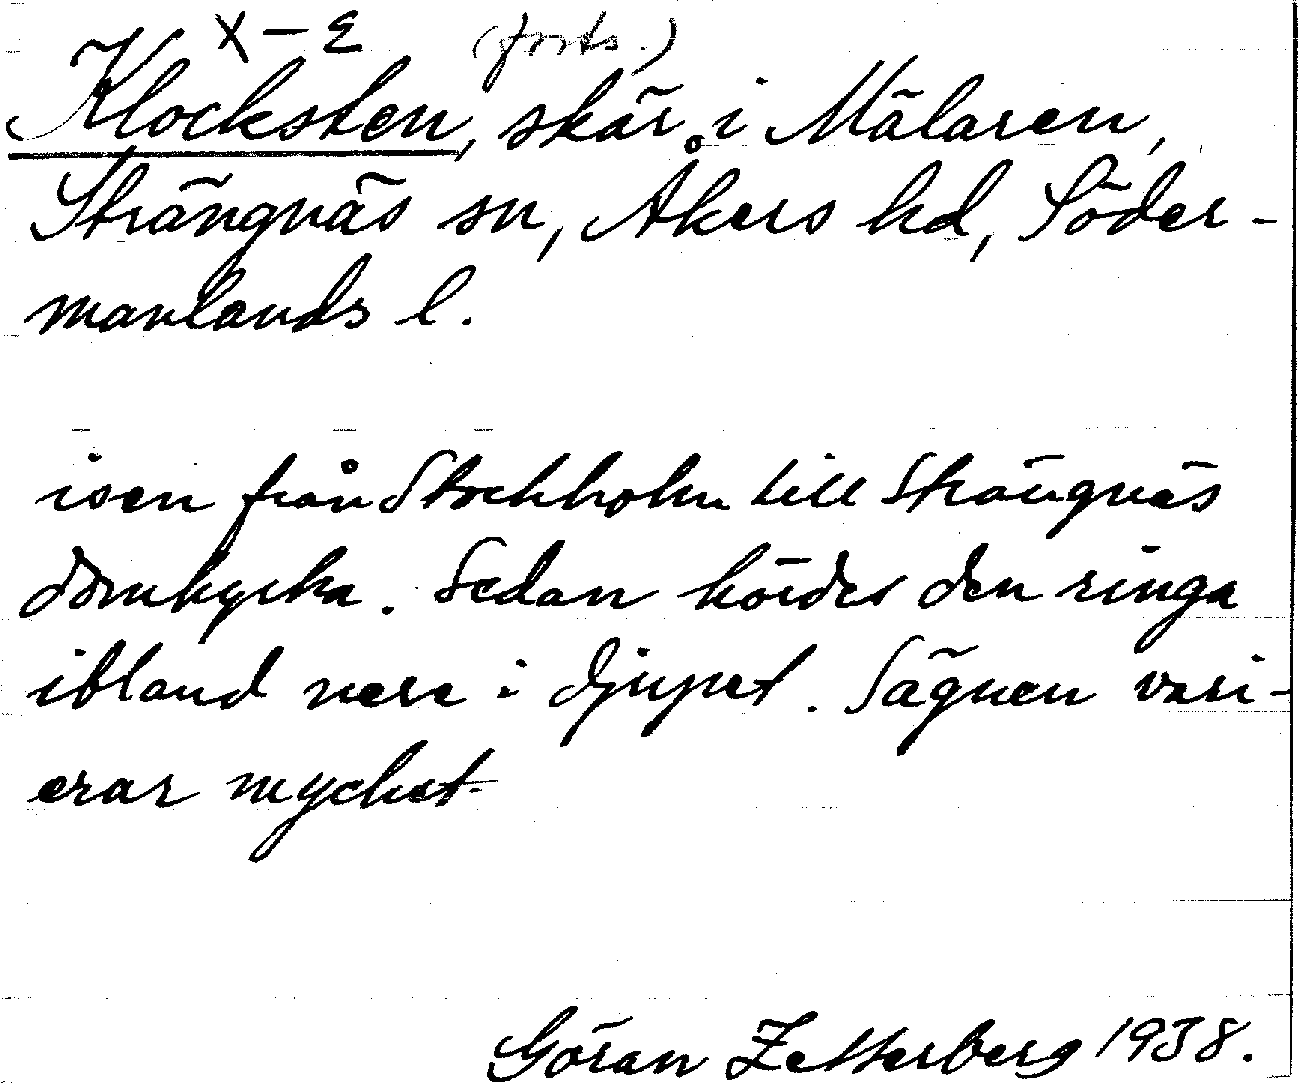 X - ε (forts.)
Klocksten, skär i Mälaren,
Strängnäs sn, Åkers hd, Söder-
manlands l.
isen från Stockholm till Strängnäs
domkyrka. Sedan hördes den ringa
ibland nere i djupet. Sägnen vari-
erar mycket
Göran Zetterberg 1938.